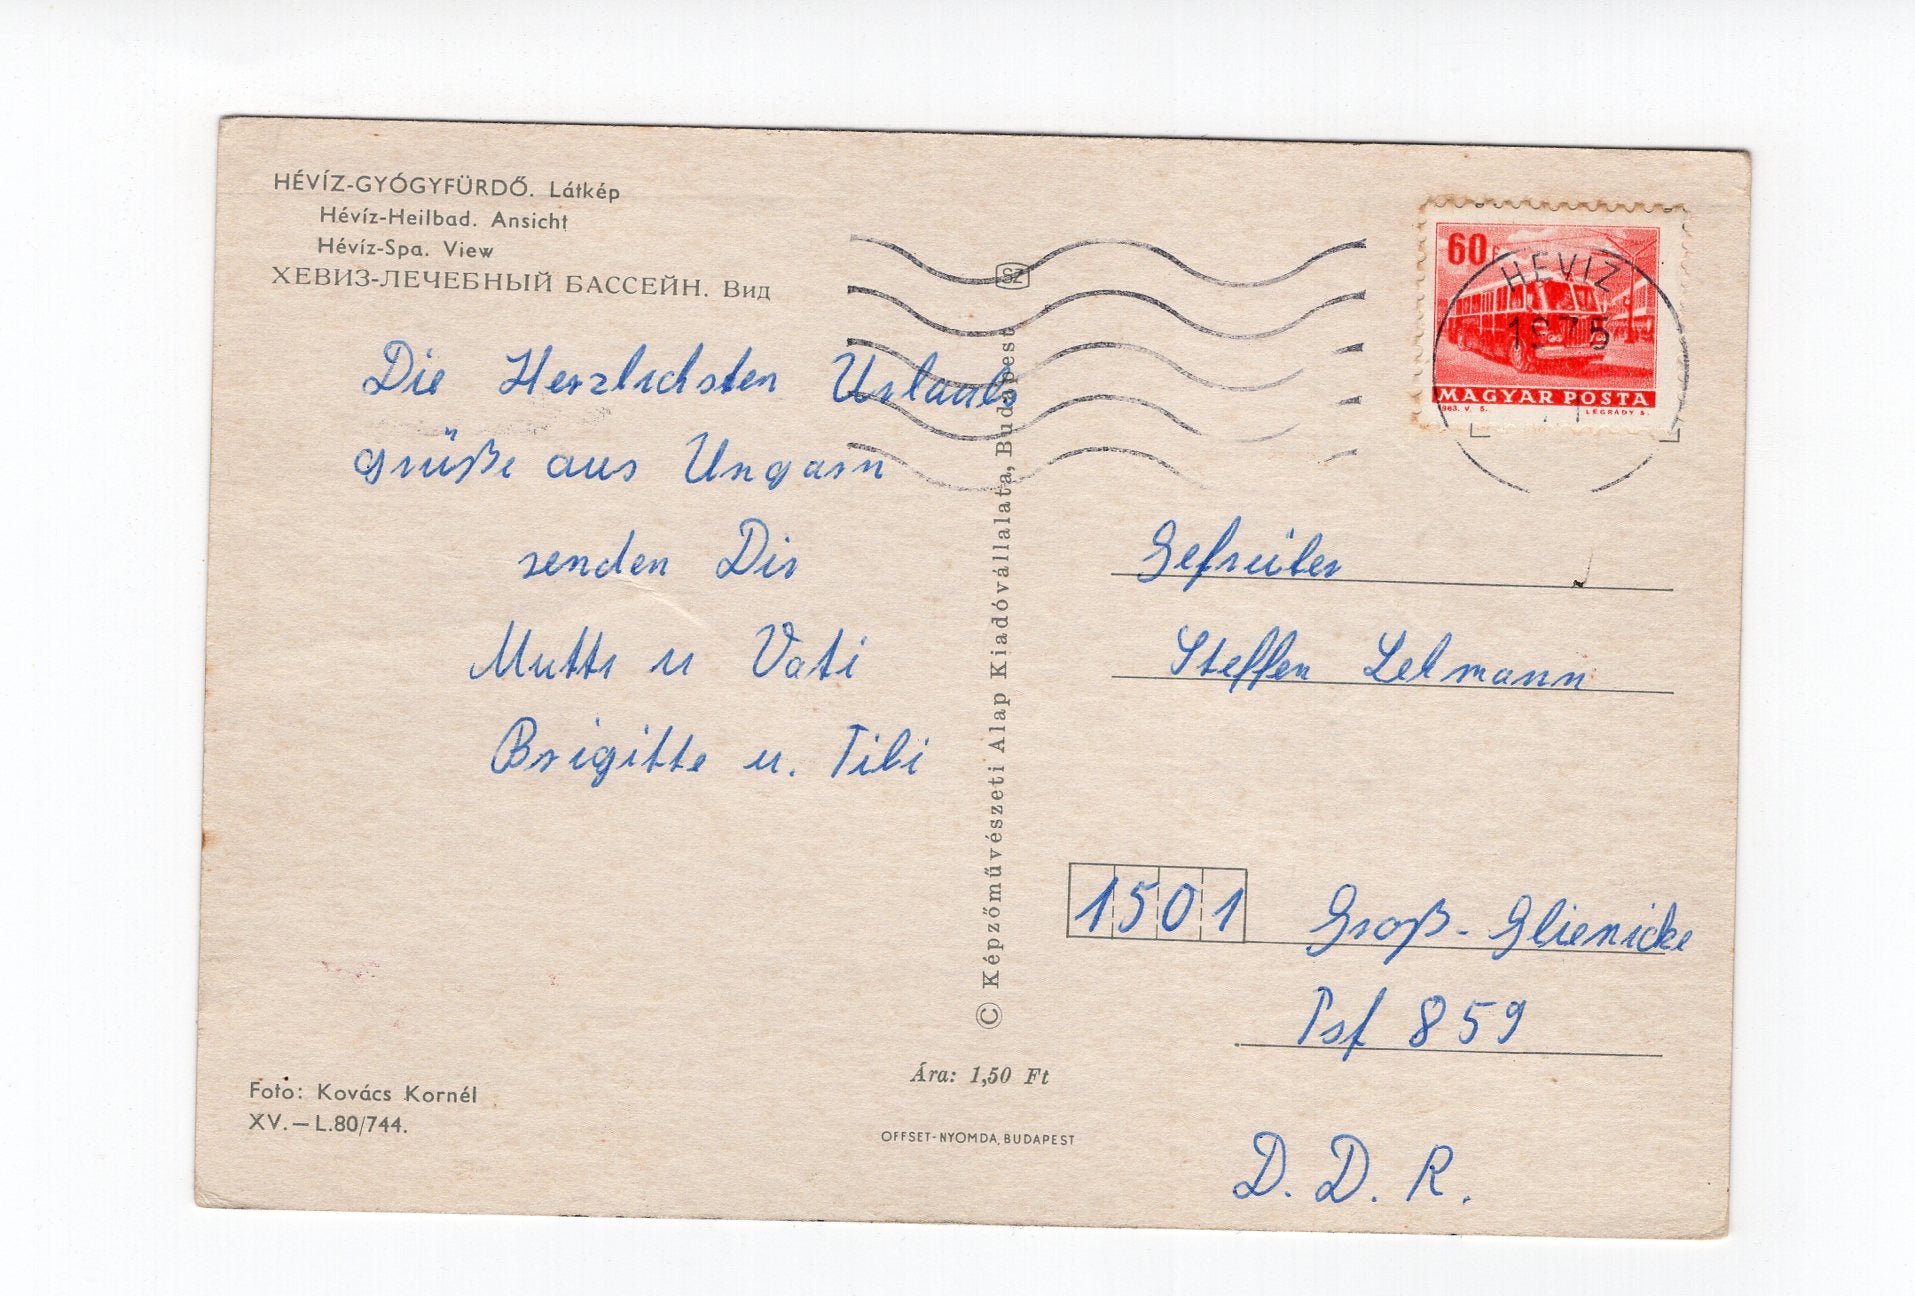 HÉVÍZ-GYÓGYFÜRDŐ. Látkép
Hévíz-Heilbad. Ansicht
Hévíz-Spa. View
ХЕВИЗ-ЛЕЧЕБНЫЙ БАССЕЙН. Вид
Die Herzlichsten Urlaubs
grüße aus Ungarn
senden Dir
Mutti u Vati
Brigitte u. Tibi
Foto: Kovács Kornél
XV. — L.80/744.
SZ
© Képzőművészeti Alap Kiadóvállalata, Budapest
Ára: 1,50 Ft
OFFSET-NYOMDA, BUDAPEST
60f
HÉVÍZ
1975
MAGYAR POSTA
1963. V. 5. LÉGRÁDY S.
Gefreiter
Steffen
1501 Groß-Glienicke
Psf 859
D. D. R.